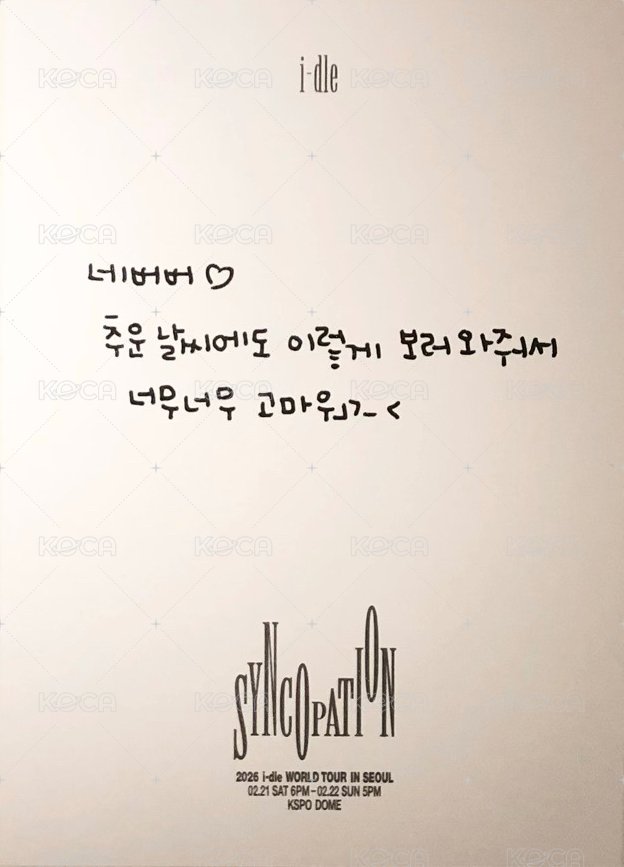 i-dle
네버버♡
추운 날씨에도 이렇게 보러와줘서
너무너무 고마워>_<
SYNCOPATION
2026 i-dle WORLD TOUR IN SEOUL
02.21 SAT 6PM-02.22 SUN 5PM
KSPO DOME